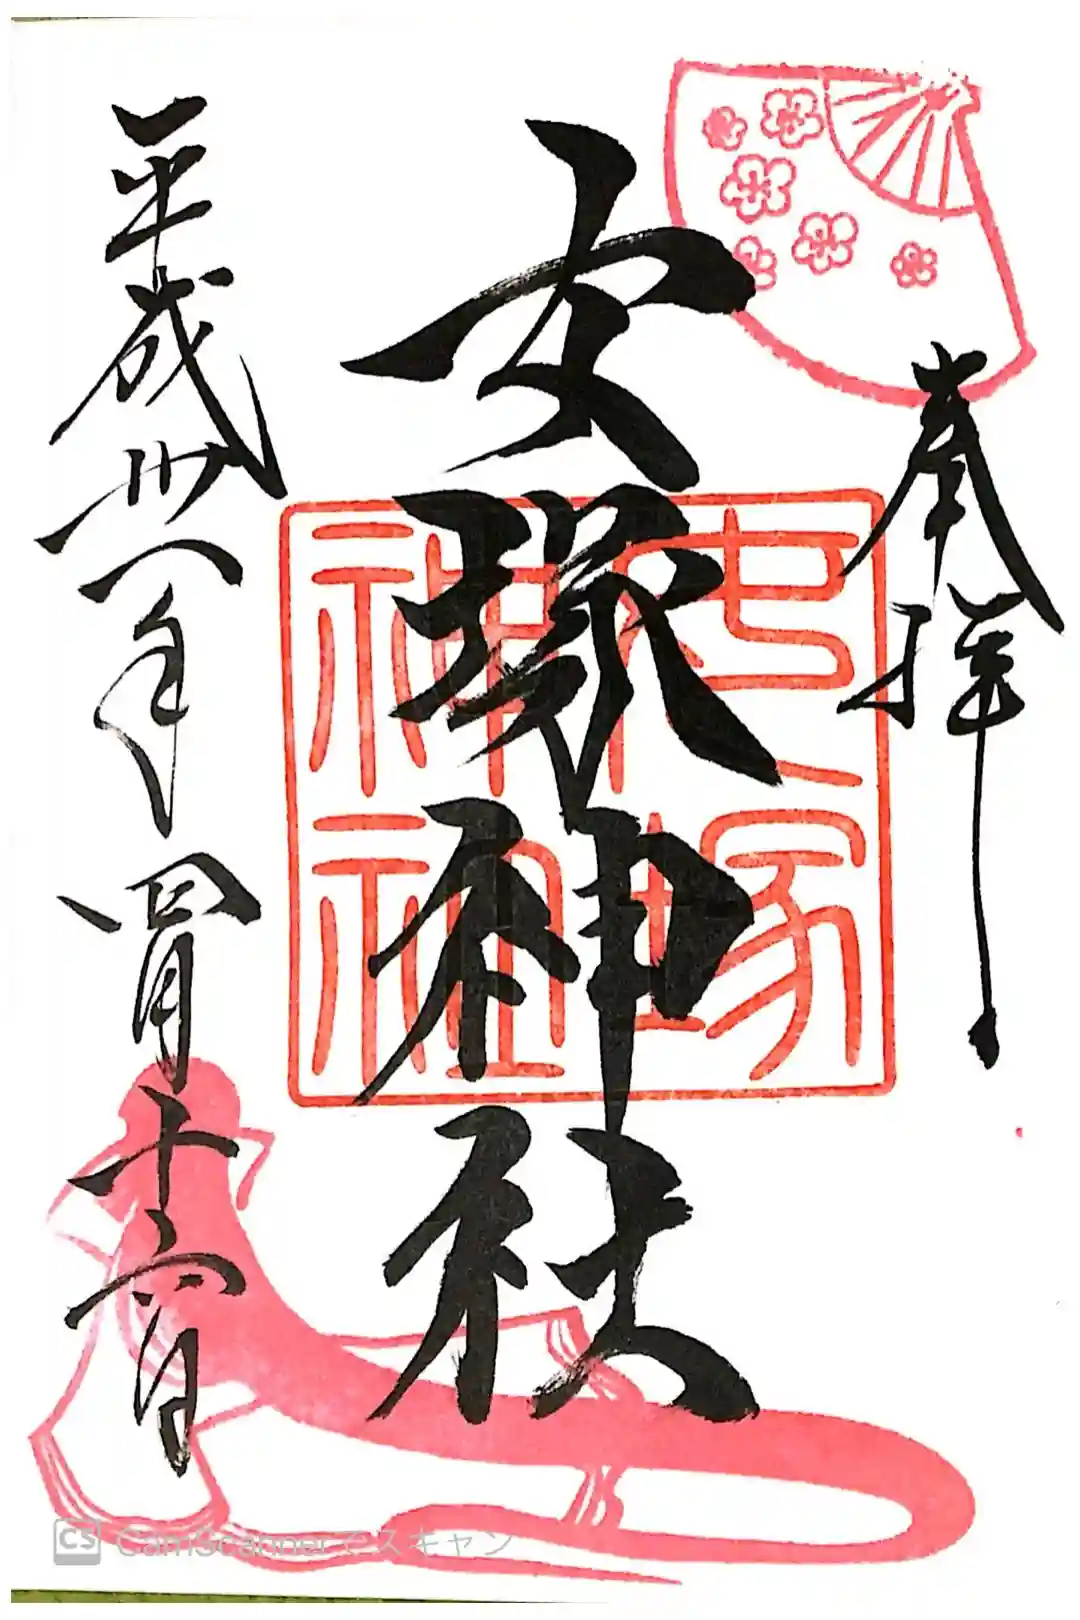 奉拝
女塚神社
女塚神社
平成卅一年四月十六日
CS CamScannerでスキャン